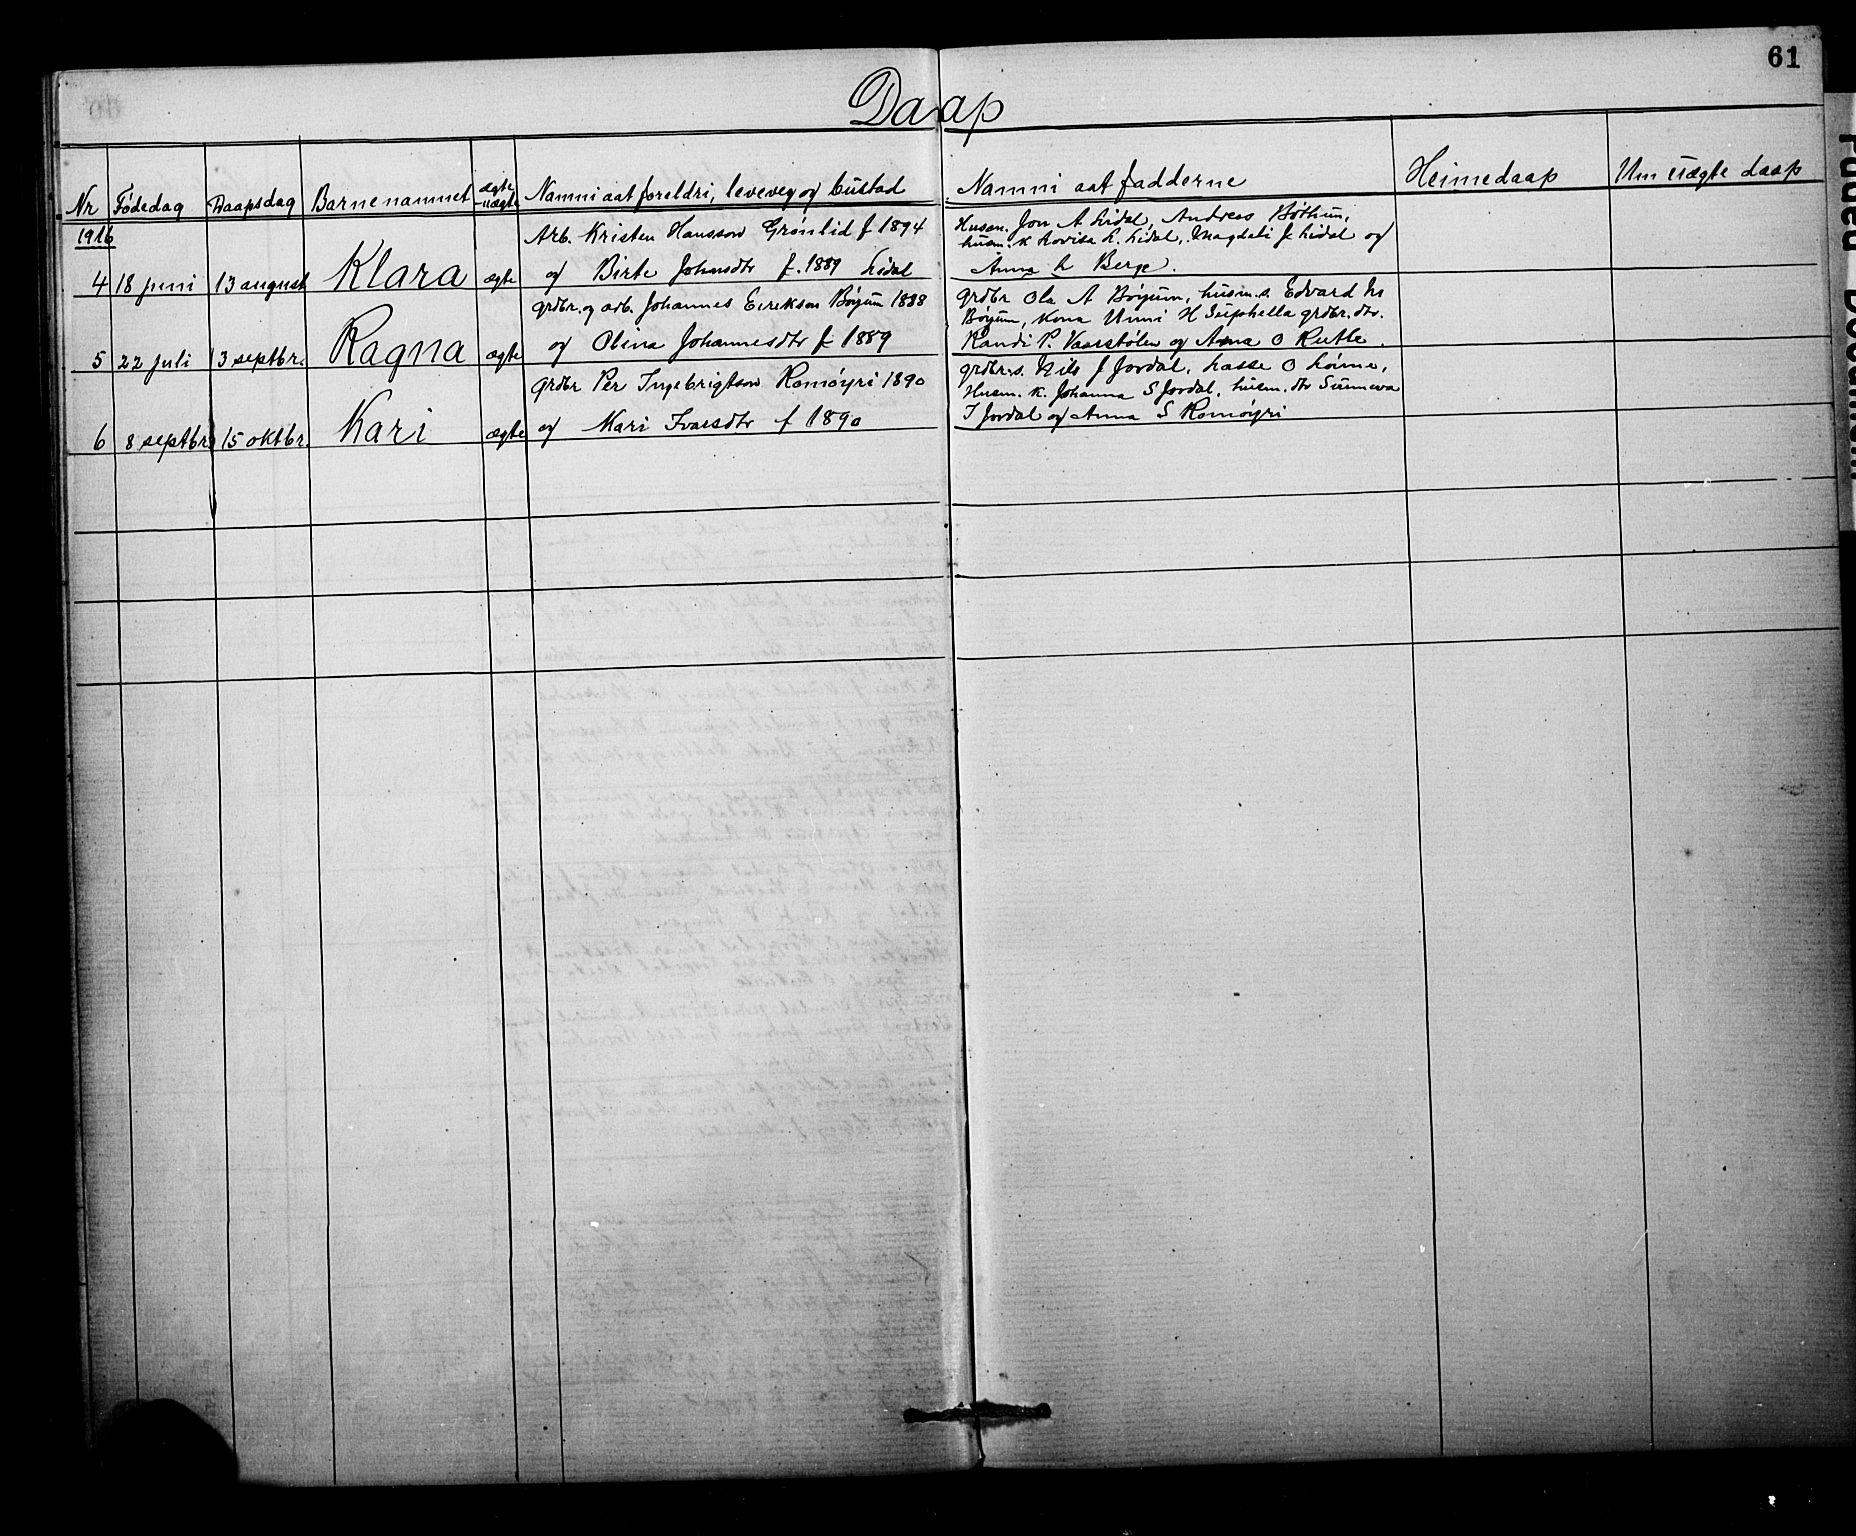 61
Daap
Nr Fødedag Daapsdag Barnenamnet ægte uægte Namni aat foreldri, leveveg og bustad Namni aat fadderne Heimedaap Um uægte daap
1916
Arb. Kristen Hansson Grønlid f 1894
4 18 juni 13 august Klara ægte og Birte Johnsdtr f. 1889 Lidal
Husm. Jon A Lidal, Andreas Bøthun,
husm. k Lovisa L. Lidal, Magdeli J Lidal og
Anna L Berge.
grdbr. og arb. Johannes Eirikson Bøyum 1888
5 22 juli 3 septbr. Ragna ægte og Olina Johannesdtr f 1889
grdbr Ola A Bøyum, husm. s. Edvard M
Bøyum, Kona Unni H Suphella grdbr. dtr.
Randi P. Vaarstølen og Anna O Rutle.
grdbr Per Ingebrigtson Romøyri 1890
6 8 septbr 15 oktbr. Kari ægte og Kari Ivarsdtr f 1890
grdbr. s. Nils J Jordal, Lasse O
Husm. k. Johanna S Jordal, husm. dtr Sunneva
I Jordal og Anna S Romøyri